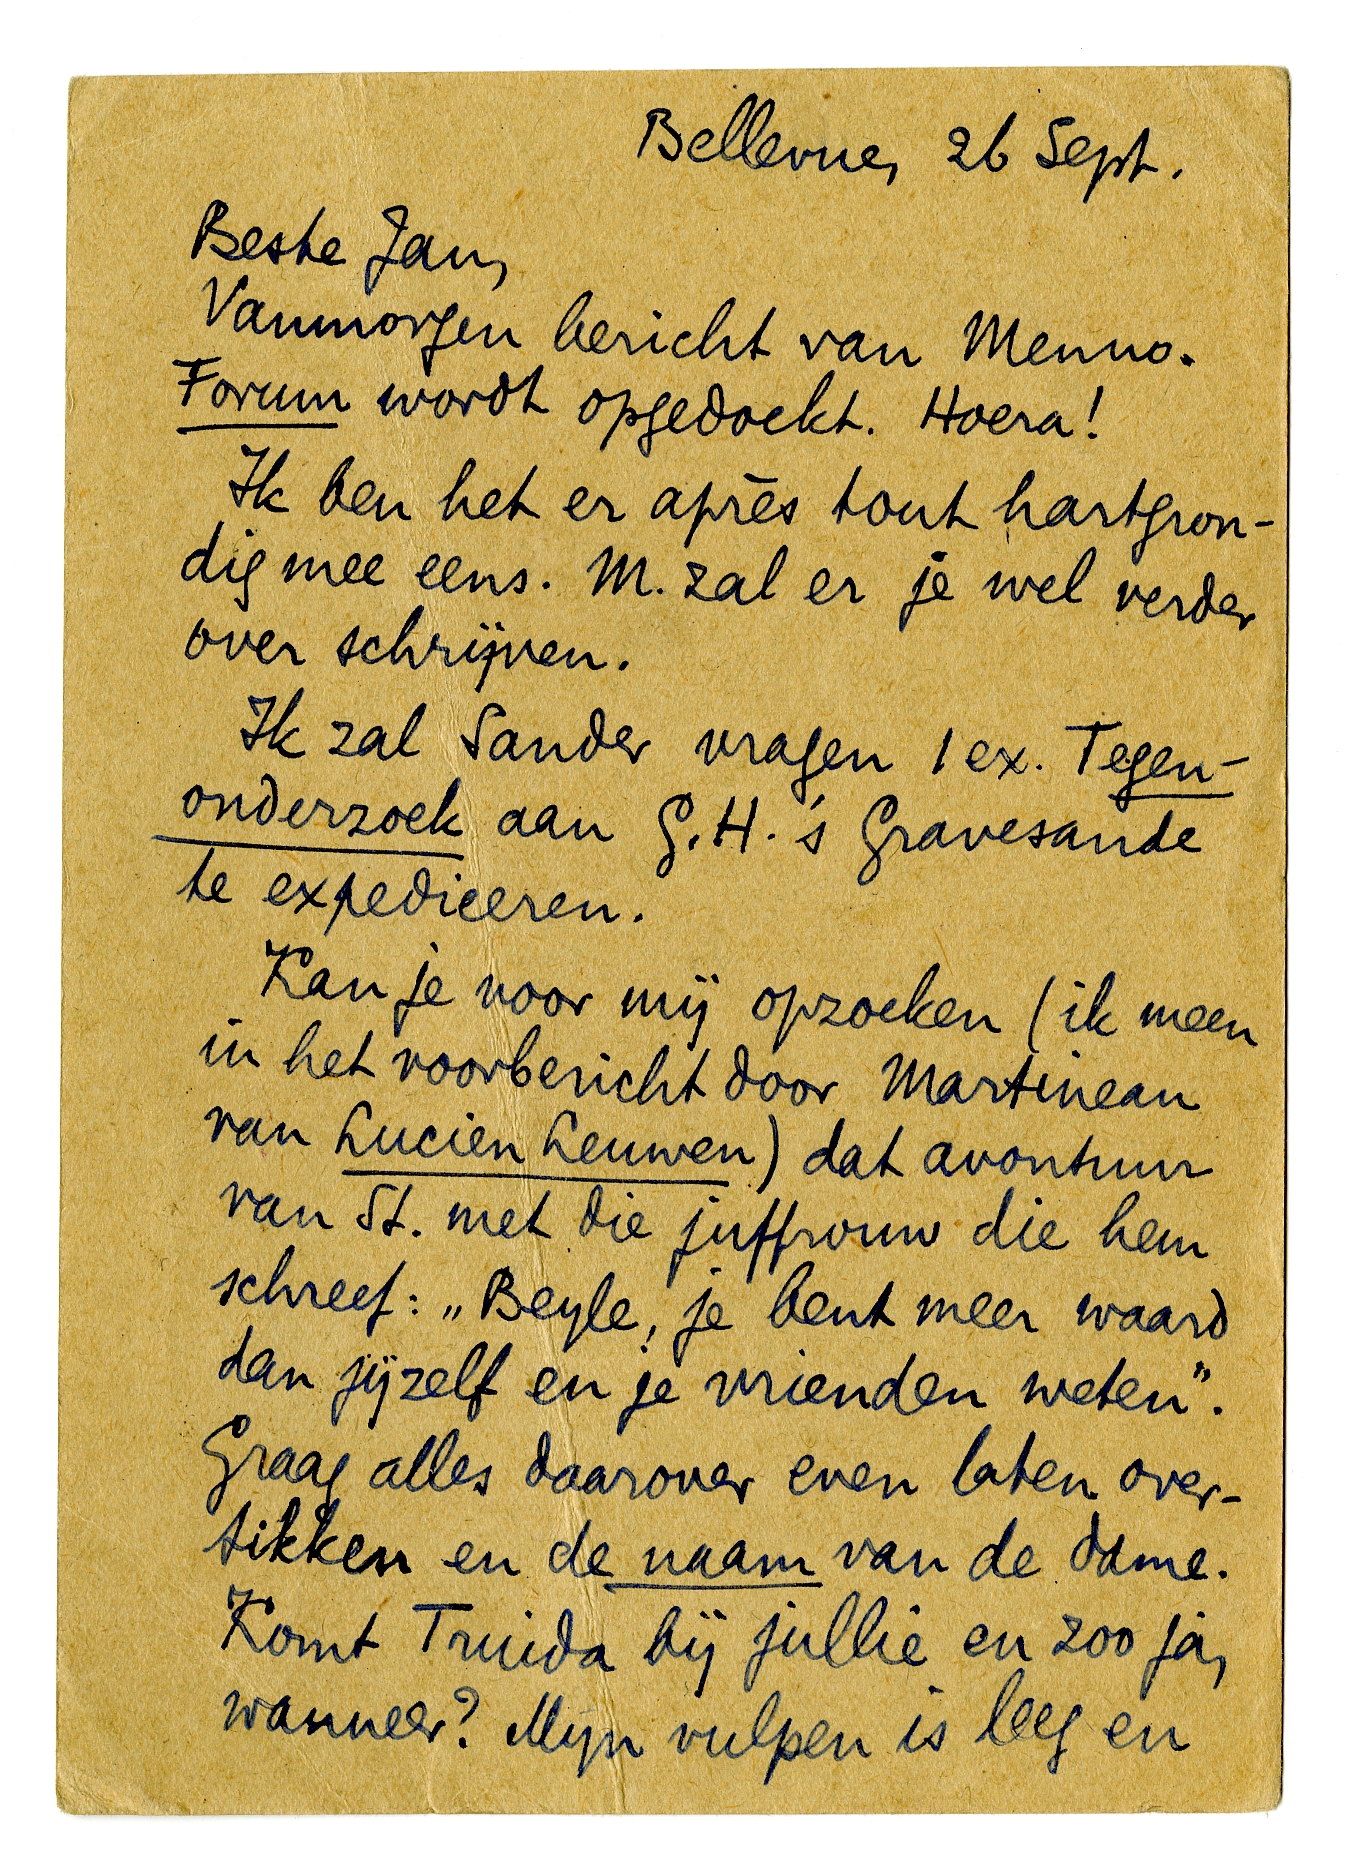 Bellevue, 26 Sept.
Beste Jan,
Vanmorgen bericht van Menno.
Forum wordt opgedoekt. Hoera!
Ik ben het er après tout hartgron-
dig mee eens. M. zal er je wel verder
over schrijven.
Ik zal Sander vragen 1 ex. Tegen-
onderzoek aan G.H. 's Gravesande
te expediëeren.
Kan je voor mij opzoeken (ik meen
in het voorbericht door Martineau
van Lucien Leuwen) dat avontuur
van St. met die juffrouw die hem
schreef: „Beyle, je bent meer waard
dan jijzelf en je vrienden weten".
Graag alles daarover even laten over-
tikken en de naam van de dame.
Komt Truida bij jullie en zoo ja,
wanneer? Mijn vulpen is leeg en